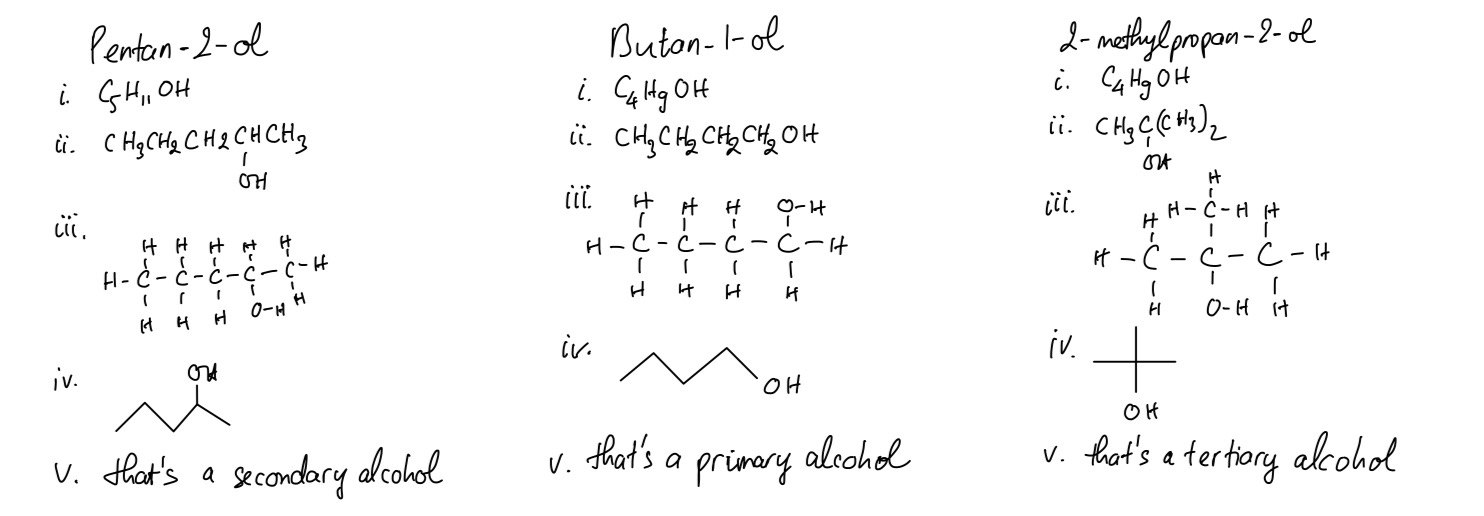 Pentan-2-ol
i. C5H11OH
ii. CH3CH2CH2CHCH3
OH
iii.
H H H H H
H-C-C-C-C-C-H
H H H O-H H
iv.
OH
v. that's a secondary alcohol
Butan-1-ol
i. C4H9OH
ii. CH3CH2CH2CH2OH
iii.
H H H O-H
H-C-C-C-C-H
H H H H
iv.
OH
v. that's a primary alcohol
2-methylpropan-2-ol
i. C4H9OH
ii. CH3C(CH3)2
OH
iii.
H
H H-C-H H
H-C-C-C-H
H O-H H
iv.
OH
v. that's a tertiary alcohol